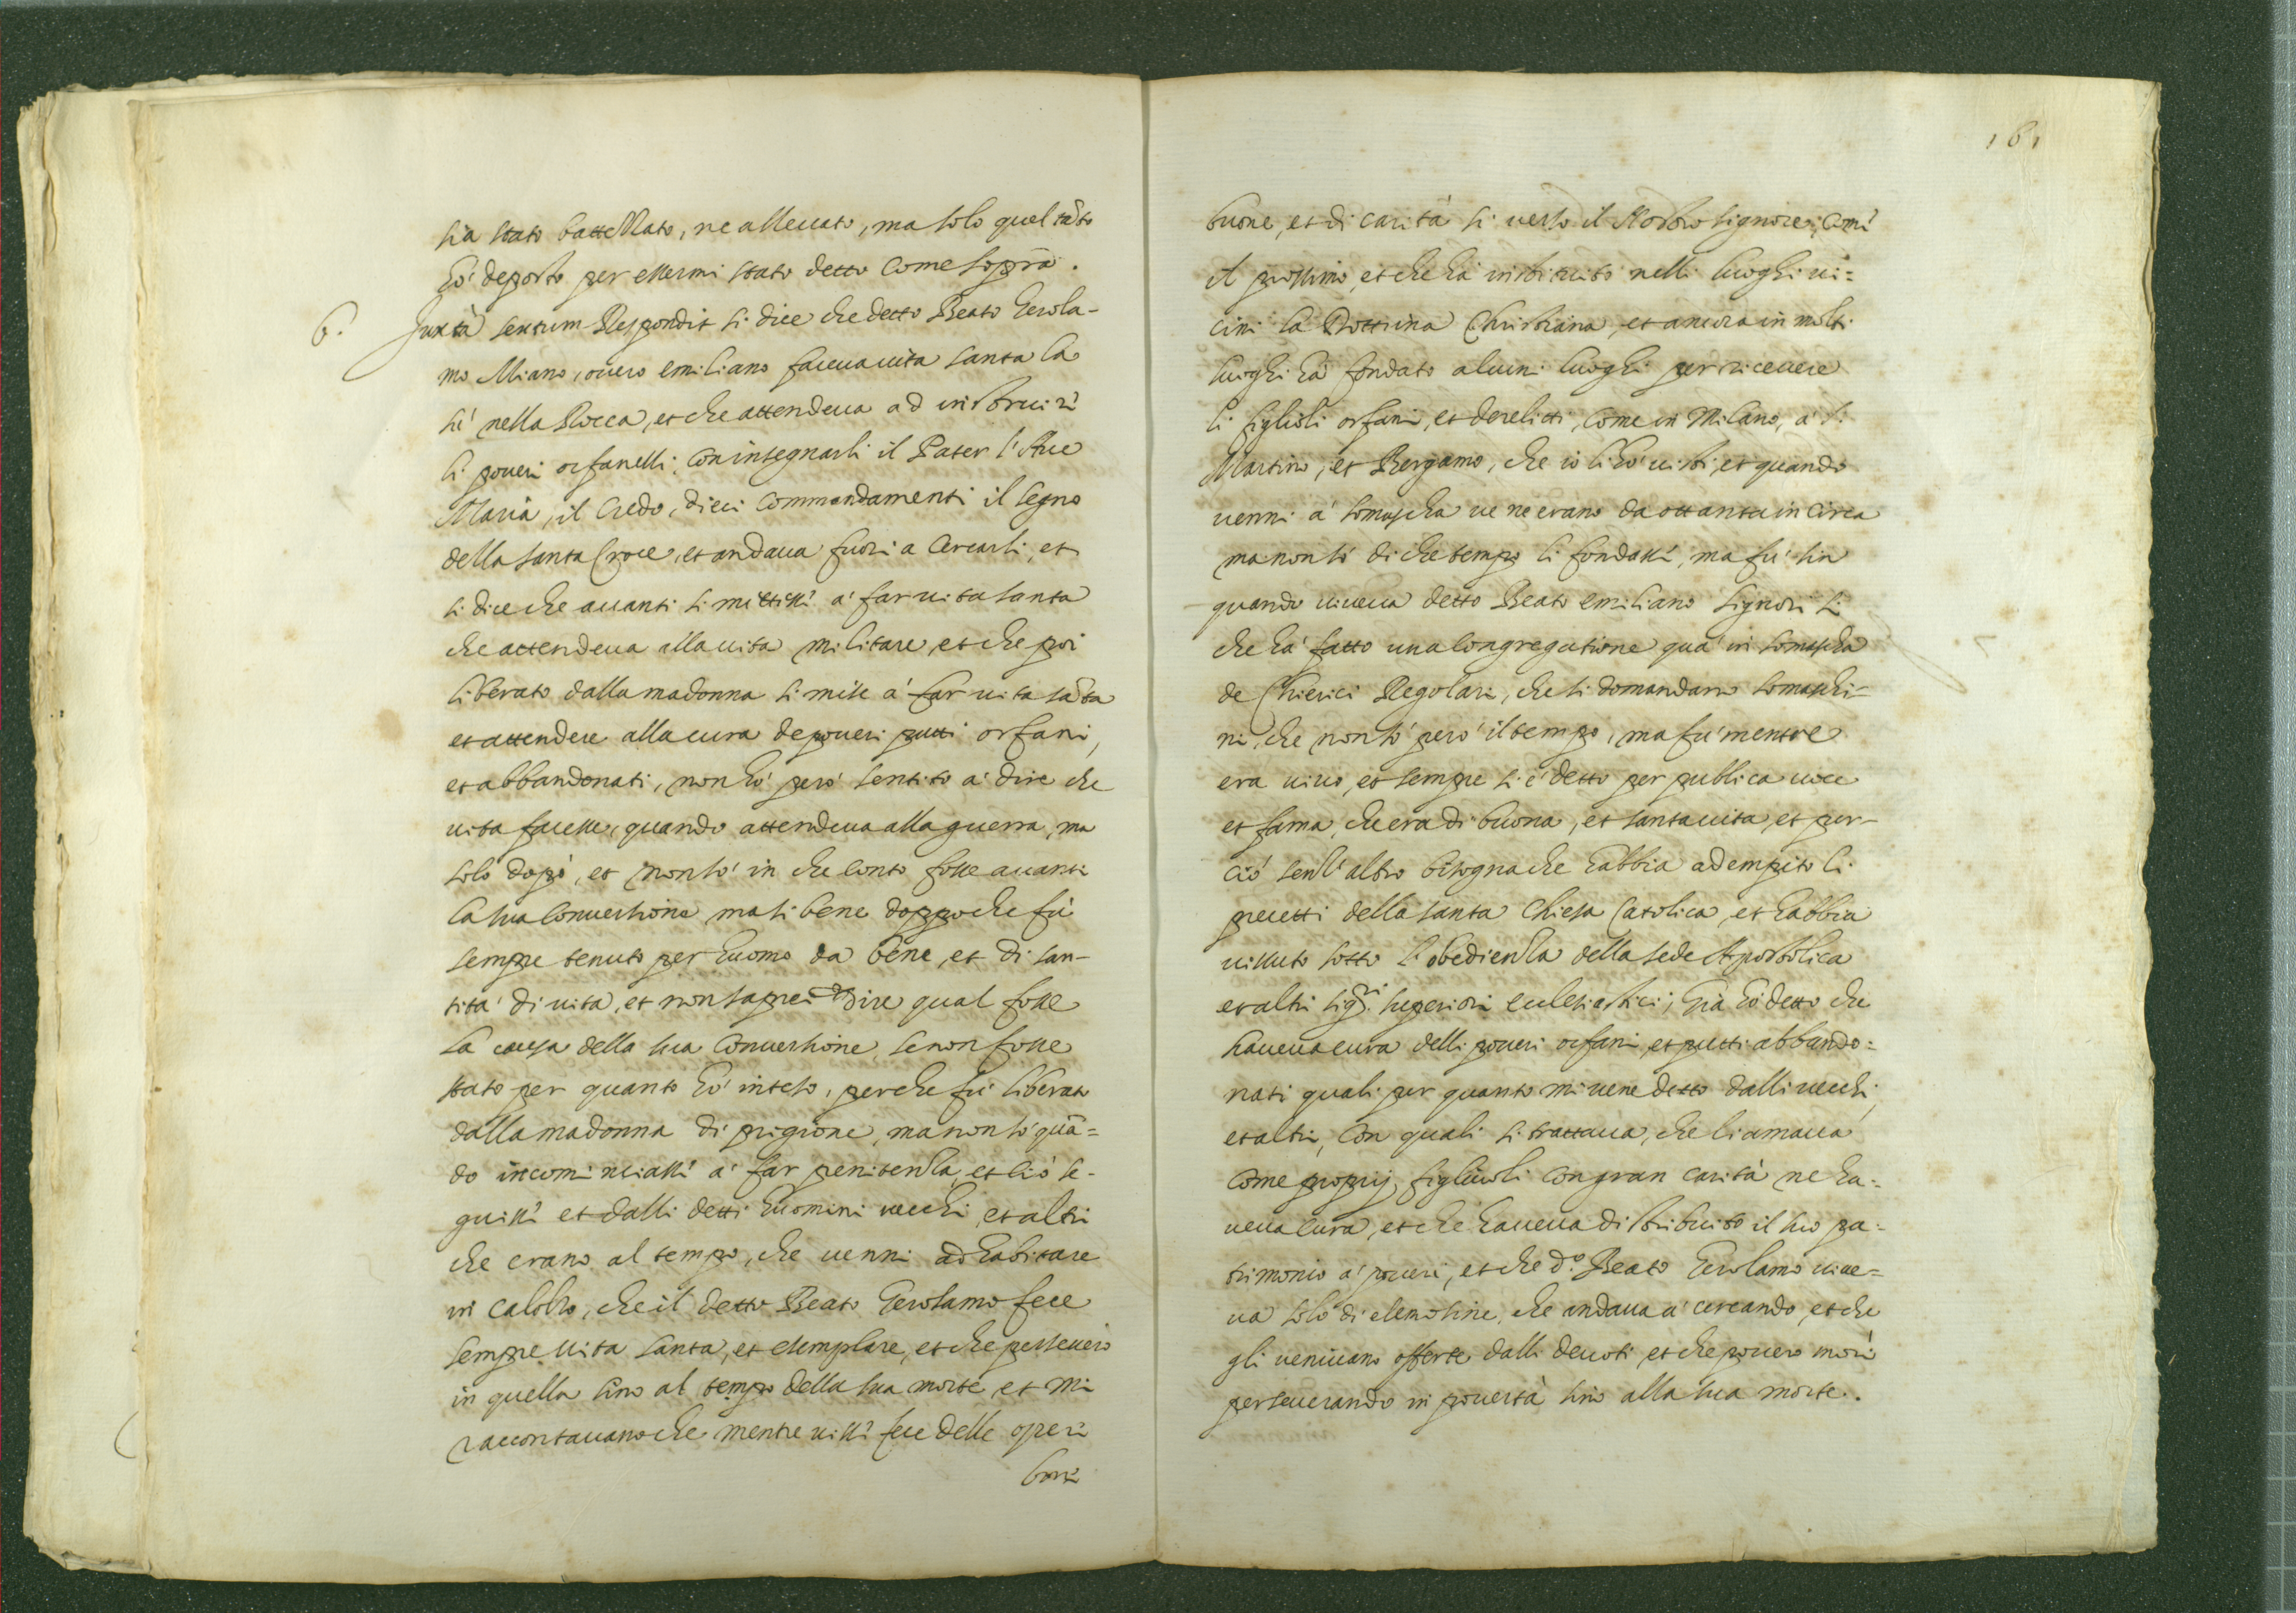 sia stato battezzato, ne alleuato, ma solo quel tãto
hò deposto per essermi stato detto come soprà.
6. Juxtà sextum Respondit si dice che detto Beato Gerola-
mo Miano, ouero emiliano faceua uita santa là
sù nella Rocca, et che attendeua ad instruire
li poueri orfanelli, con insegnarli il Pater l'Aue
Maria, il Credo, dieci commandamenti il segno
della santa Croce, et andaua fuori a cercarli, et
si dice che auanti si mettesse a' far uita santa
che attendeua alla uita militare, et che poi
liberato dalla madonna si mise a' far uita sãta
et attendere alla cura de poueri putti orfani,
et abbandonati, non hò però sentito a' dire che
uita facesse, quando attendeua alla guerra, ma
solo dopò, et non sò in che conto fosse auanti
la sua conuersione, ma si bene doppo che fù
sempre tenuto per huomo da bene, et di san-
tità di uita, et non saprei dire qual fosse
la causa della sua conuersione, se non fosse
stato per quanto hò inteso, perche fù liberato
dalla madonna di prigione, ma non sò quã=
do incominciasse a' far penitenza, et ciò se-
guisse et dalli detti huomini uecchi, et altri
che erano al tempo, che uenni ad habitare
in Calolzo, che il detto Beato Gerolamo fece
sempre uita santa, et esemplare, et che perseuerò
in quella sino al tempo della sua morte, et mi
raccontauano che mentre uisse fece delle opere
bone
161
buone, et di carità si uerso il Nostro signore, come
il prossimo, et che hà instituito nelli luoghi ui=
cini la Dottrina Christiana, et ancora in molti
luoghi hà fondato alcuni luoghi per riceuere
li figlioli orfani, et derelitti, come in Milano, a' S.
Martino, et Bergamo, che io li hò uisti, et quando
uenni a' somascha ue ne erano da ottanta in circa
ma non sò di che tempo li fondasse, ma fù sin
quando uiueua detto Beato emiliano signori si
che hà fatto una congregatione quà in somascha
de Chierici Regolari, che si domandano somaschi=
ni, che non sò però il tempo, ma fù mentre
era uiuo, et sempre si è detto per publica uoce
et fama, che era di buona, et santa uita, et per-
ciò senz'altro bisogna che habbia adempito li
precetti della santa Chiesa Catolica, et habbia
uissuto sotto l'obedienza della sede Apostolica
et altri sigri. superiori ecclesiastici, già hò detto che
haueua cura delli poueri orfani, et putti abbando=
nati quali per quanto mi uene detto dalli uecchi,
et altri, con quali si trattaua, che li amaua
come proprij figliuoli con gran carità ne ha=
ueua cura, et che haueua distribuito il suo pa=
trimonio a' poueri, et che do. Beato Gerolamo uiue=
ua solo di elemosine, che andaua a' cercando, et che
gli ueniuano offerte dalli deuoti et che pouero morì
perseuerando in pouertà sino alla sua morte.